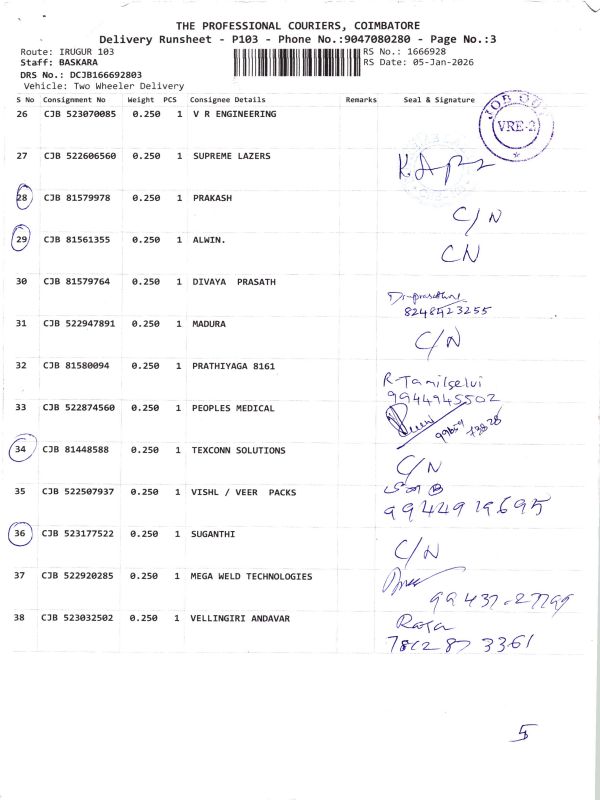 THE PROFESSIONAL COURIERS, COIMBATORE
Delivery Runsheet - P103 - Phone No.:9047080280 - Page No.:3
Route: IRUGUR 103 RS No.: 1666928
Staff: BASKARA RS Date: 05-Jan-2026
DRS No.: DCJB166692803
Vehicle: Two Wheeler Delivery
S No Consignment No Weight PCS Consignee Details Remarks Seal & Signature
26 CJB 523070085 0.250 1 V R ENGINEERING
JOB OUT
VRE-2
27 CJB 522606560 0.250 1 SUPREME LAZERS
28 CJB 81579978 0.250 1 PRAKASH C/N
29 CJB 81561355 0.250 1 ALWIN. CN
30 CJB 81579764 0.250 1 DIVAYA PRASATH
8248423255
31 CJB 522947891 0.250 1 MADURA C/N
32 CJB 81580094 0.250 1 PRATHIYAGA 8161 R-Tamilselvi
9944945502
33 CJB 522874560 0.250 1 PEOPLES MEDICAL
34 CJB 81448588 0.250 1 TEXCONN SOLUTIONS C/N
35 CJB 522507937 0.250 1 VISHL / VEER PACKS
9944919695
36 CJB 523177522 0.250 1 SUGANTHI C/N
37 CJB 522920285 0.250 1 MEGA WELD TECHNOLOGIES
99437-27799
38 CJB 523032502 0.250 1 VELLINGIRI ANDAVAR Raja
7812873361
5